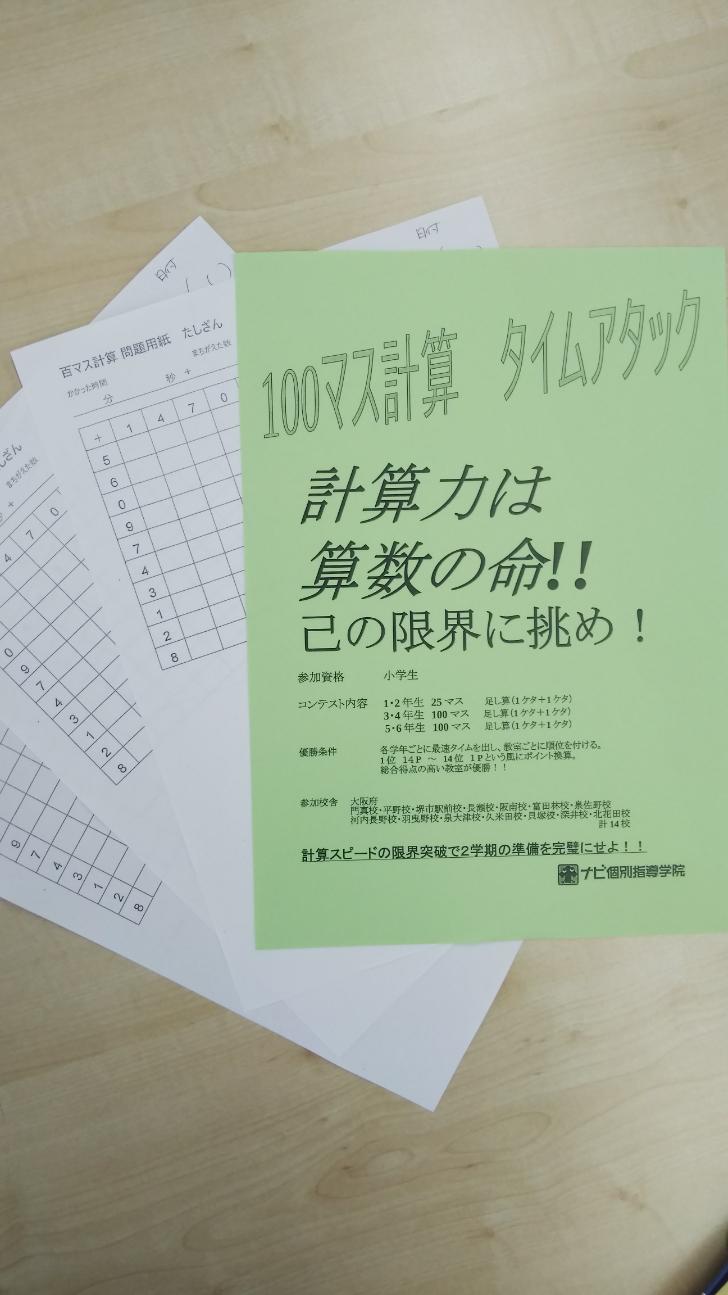 100マス計算 タイムアタック
計算力は
算数の命!!
己の限界に挑め！
参加資格 小学生
コンテスト内容 1・2年生 25マス 足し算(1ケタ+1ケタ)
3・4年生 100マス 足し算(1ケタ+1ケタ)
5・6年生 100マス 足し算(1ケタ+1ケタ)
優勝条件 各学年ごとに最速タイムを出し、教室ごとに順位を付ける。
1位 14P ～ 14位 1Pという風にポイント換算。
総合得点の高い教室が優勝！！
参加校舎 大阪府
門真校・平野校・堺市駅前校・長瀬校・阪南校・富田林校・泉佐野校
河内長野校・羽曳野校・泉大津校・久米田校・貝塚校・深井校・北花田校
計14校
計算スピードの限界突破で2学期の準備を完璧にせよ！！
ナビ個別指導学院
日付
日付
( )
百マス計算 問題用紙 たしざん
かかった時間 まちがえた数
分 秒 +
+ 1 4 7 0
5
6
0
9
7
4
3
1
2
8
ざん
まちがえた数
+
4 7 0
0
9
7
4
3
1
2
8
9
7
4
3
1
2
8